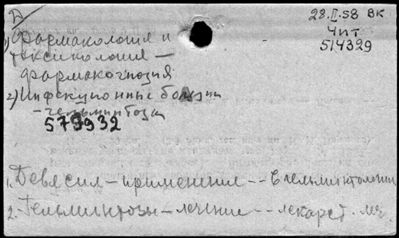 Д
28.I.58 ВК
Чит
514399
1) Фармакология и
токсикология —
фармакогнозия
2) Инфекционные болезни
— гельминтозы
579932
1. Девясил — применение -- в гельминтологии
2. Гельминтозы — лечение -- лекарст.